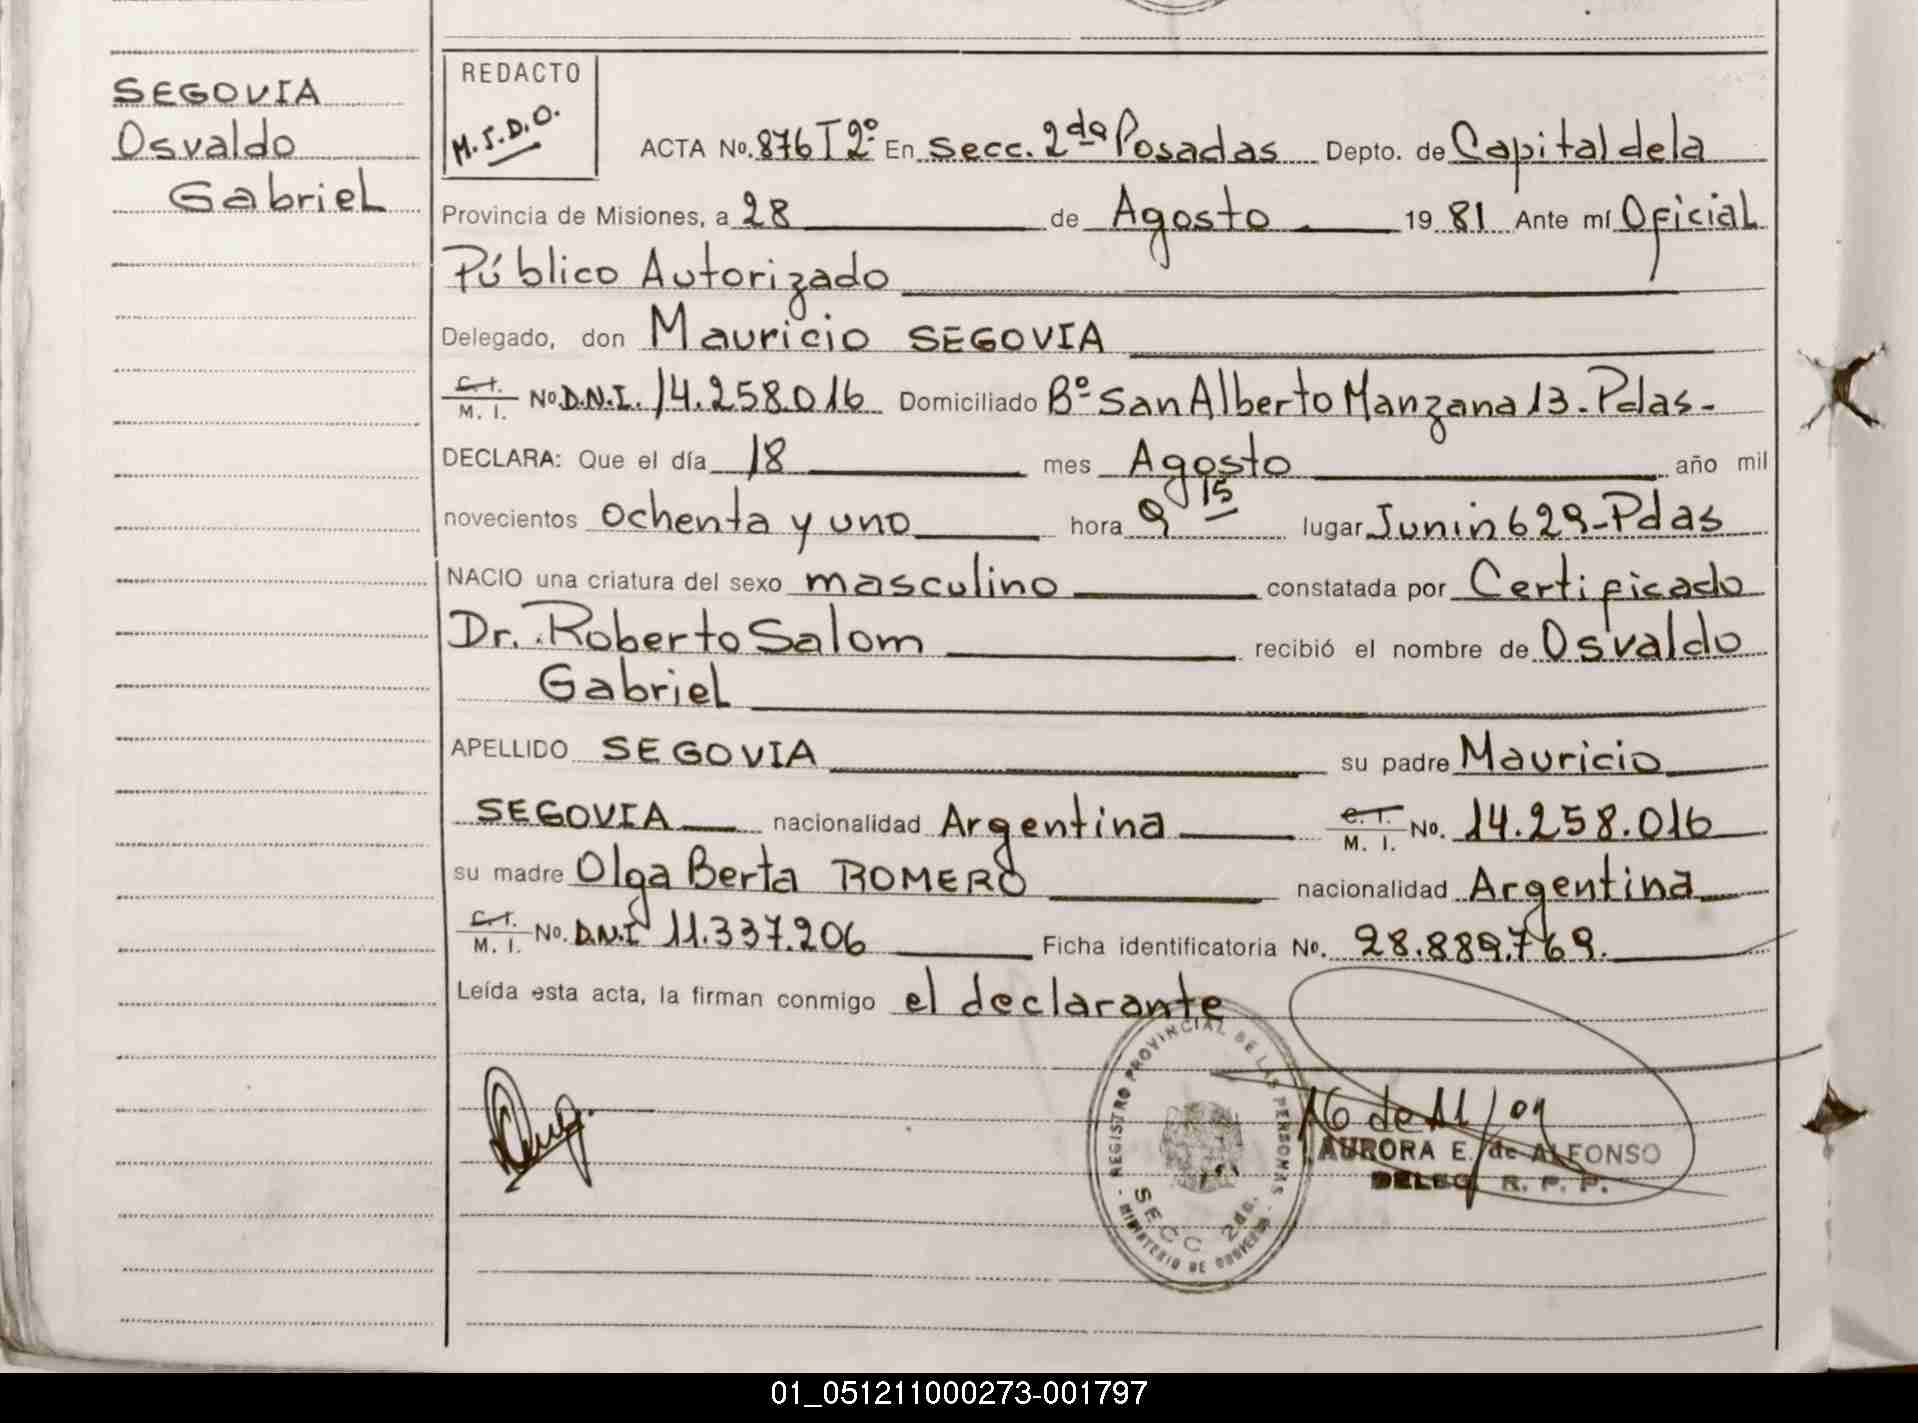 SEGOVIA
Osvaldo
Gabriel
REDACTO
M.S.D.O.
ACTA No. 876 T 2º En Secc. 2da Posadas Depto. de Capital de la
Provincia de Misiones, a 28 de Agosto 19 81 Ante mí Oficial
Público Autorizado
Delegado, don Mauricio SEGOVIA
C.I. M. I. No. D.N.I. 14.258.016 Domiciliado Bº San Alberto Manzana 13 - Pdas -
DECLARA: Que el día 18 mes Agosto año mil
novecientos ochenta y uno hora 9 15 lugar Junin 629 - Pdas
NACIO una criatura del sexo masculino constatada por Certificado
Dr. Roberto Salom recibió el nombre de Osvaldo
Gabriel
APELLIDO SEGOVIA su padre Mauricio
SEGOVIA nacionalidad Argentina C. I. M. I. No. 14.258.016
su madre Olga Berta ROMERO nacionalidad Argentina
C.I. M. I. No. D.N.I 11.337.206 Ficha identificatoria No. 28.889.769.
Leída esta acta, la firman conmigo el declarante
REGISTRO PROVINCIAL DE LAS PERSONAS
SECC 2da.
MINISTERIO DE GOBIERNO
AURORA E. de ALFONSO
DELEG. R. P. P.
01_051211000273-001797